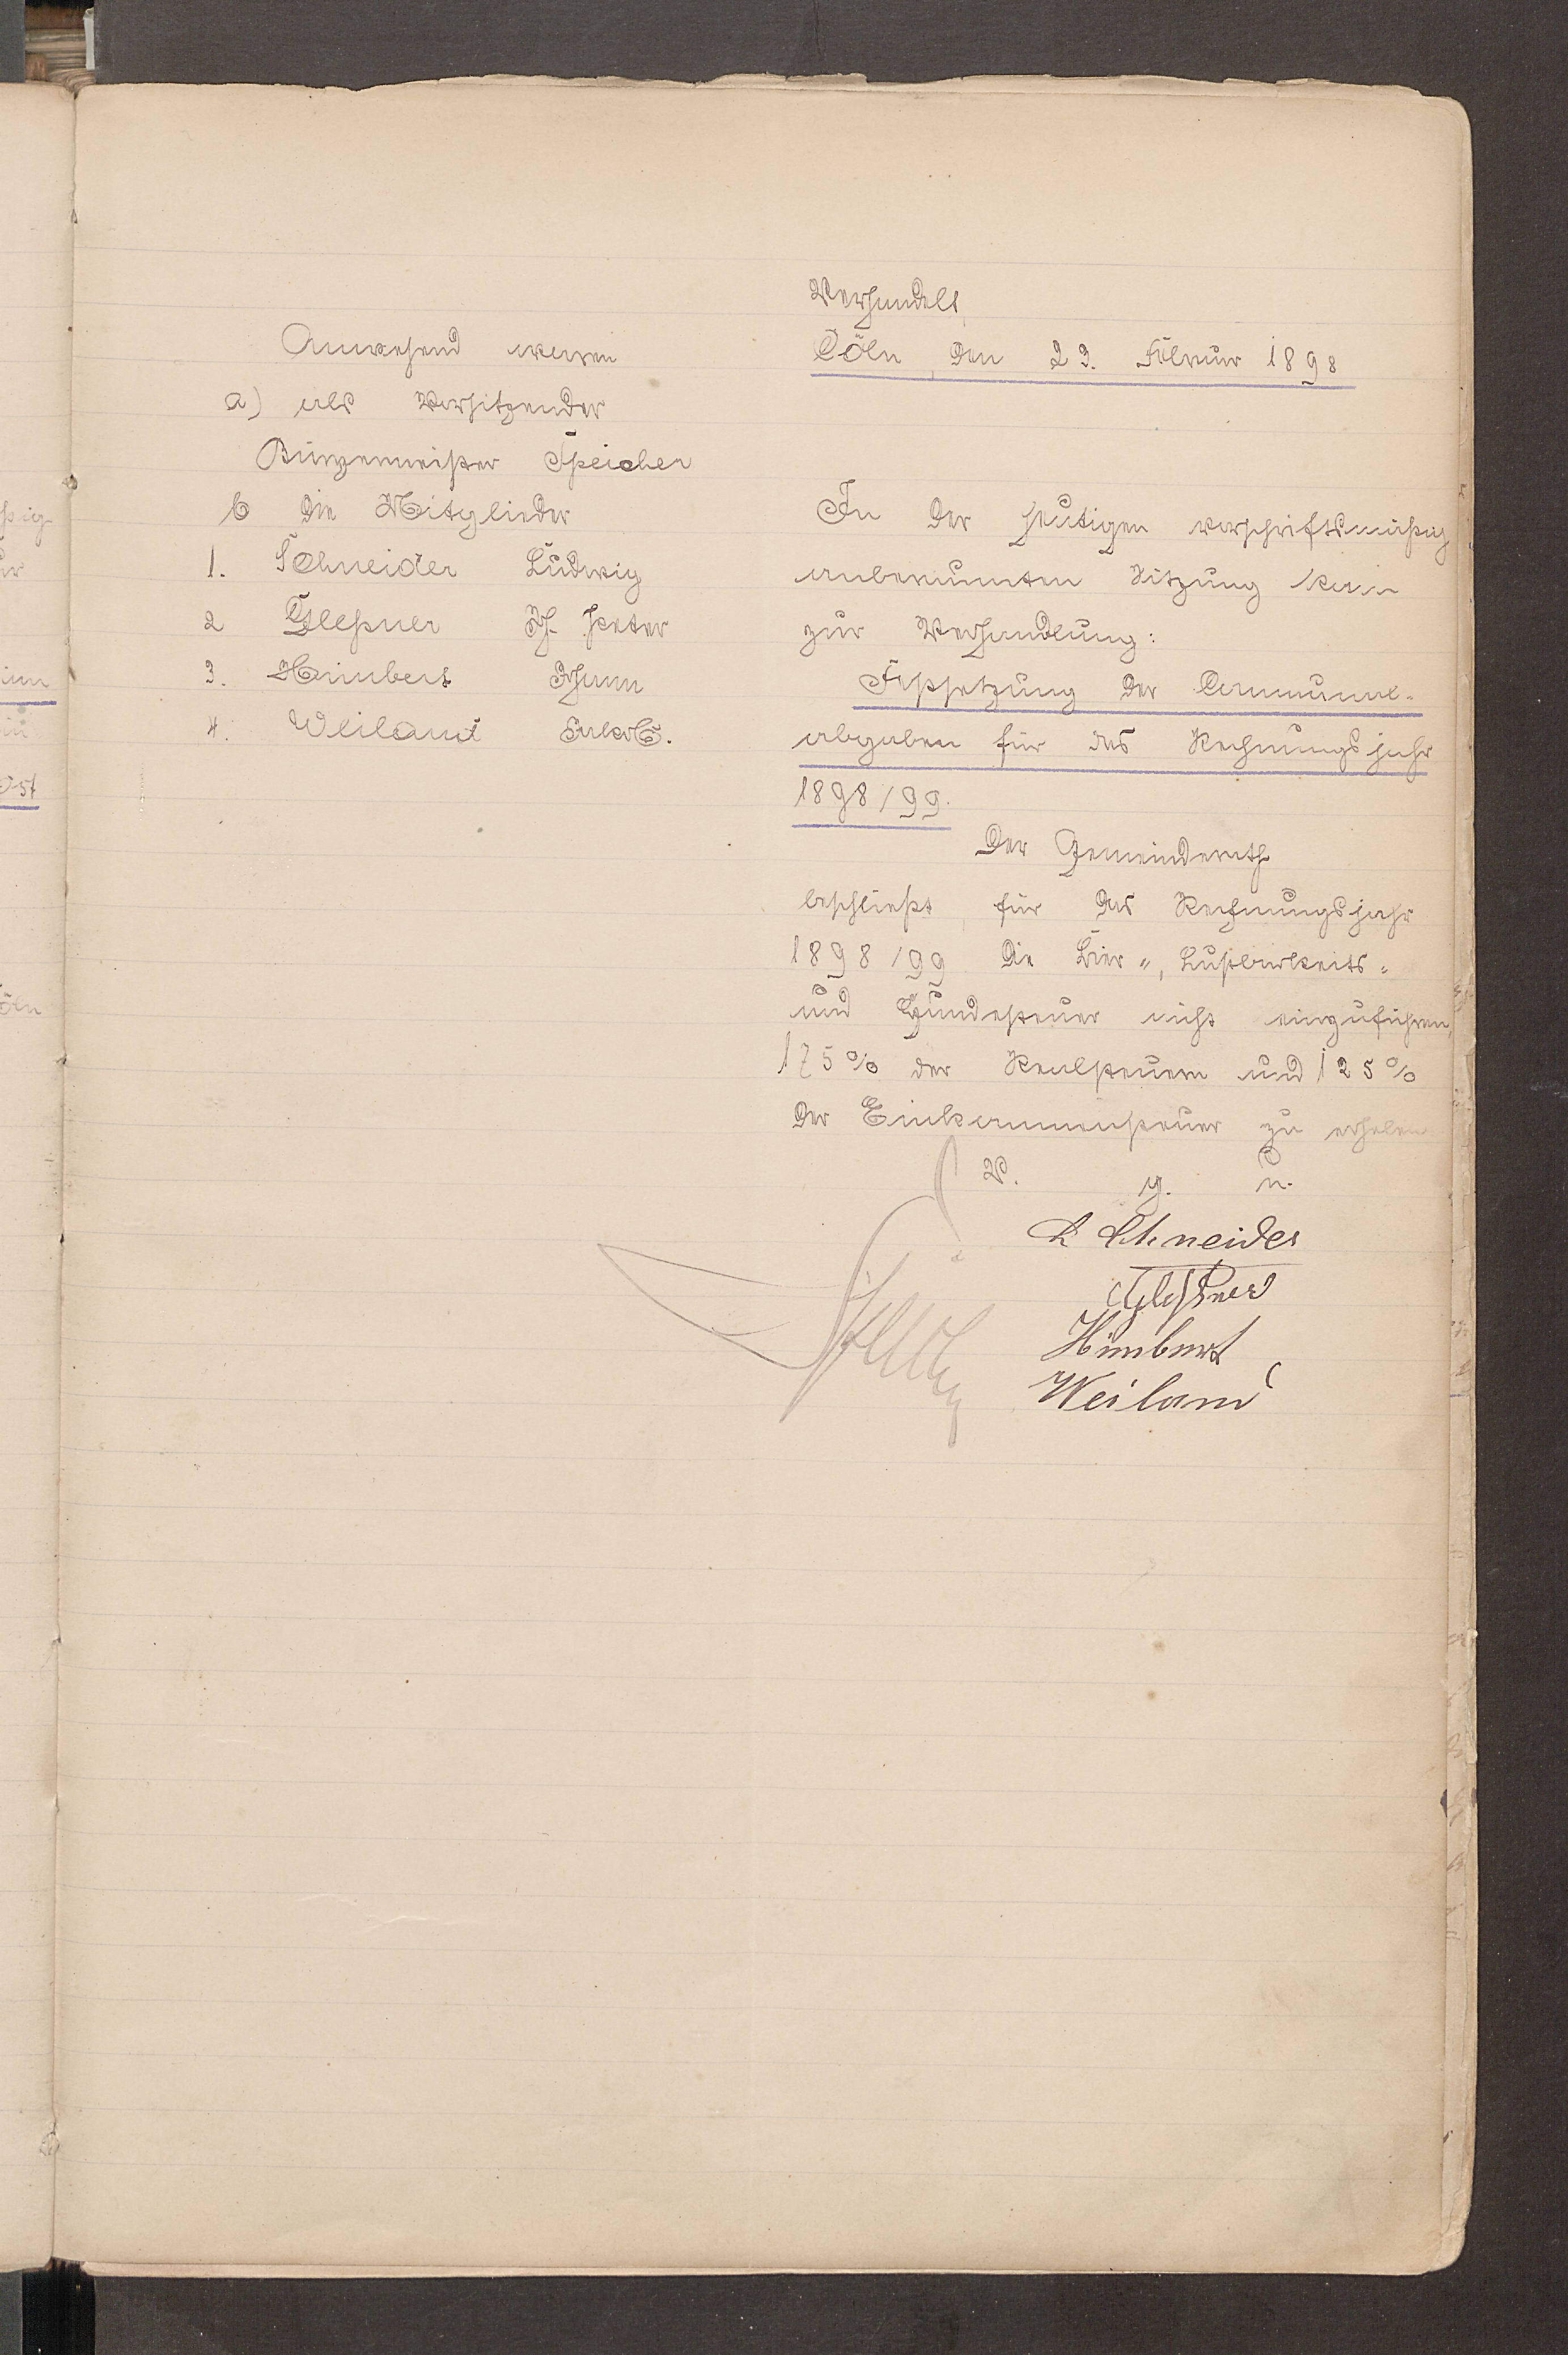 Anwesend waren
a) als Vorsitzender
Bürgermeister Speicher
b die Mitglieder
1. Schneider Ludwig
2 Gleßner Peter
3. Himbert Johann
4. Weiland Jakob.
Verhandelt
Cöln, den 23. Februar 1898
In der heutigen vorschriftsmäßig
anberaumten Sitzung kam
zur Verhandlung:
Festsetzung der Communal-
abgaben für das Rechnungsjahr
1898/99.
Der Gemeinderath
beschließt für das Rechnungsjahr
1898/99 die Bier-, Lustbarkeits-
und Hundesteuer nicht einzuführen,
175% der Realsteuern und 125%
der Einkommensteuer zu erheben
V. g. u.
L Schneider
Gleßner
Himbert
Weiland